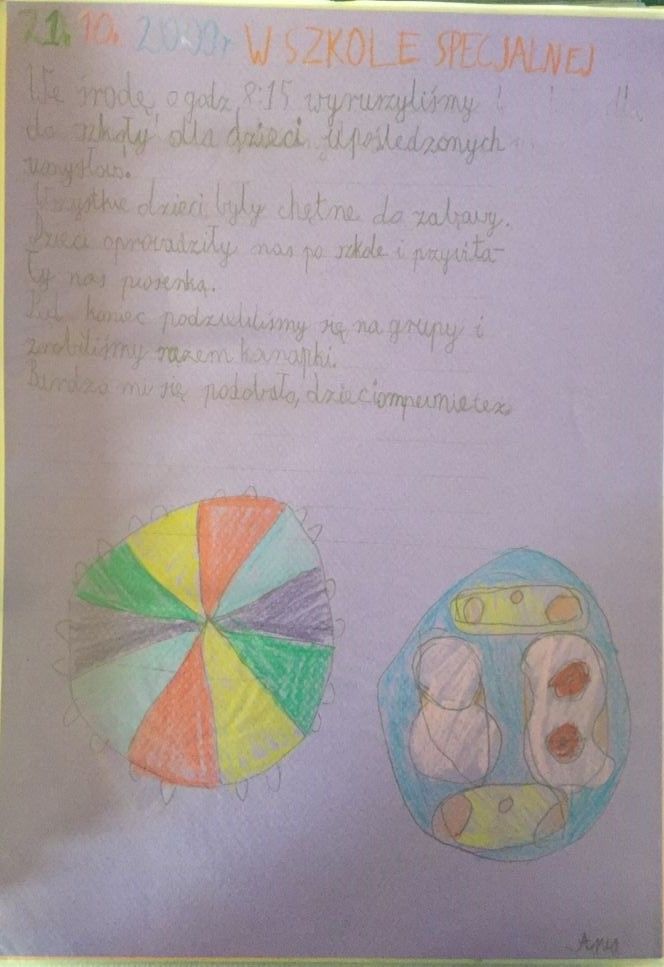 21. 10. 2009r W SZKOLE SPECJALNEJ
We środę o godz. 8:15 wyruszyliśmy
do szkoły dla dzieci upośledzonych
umysłowo.
Wszystkie dzieci były chętne do zabawy.
Dzieci oprowadziły nas po szkole i przywita-
ły nas piosenką.
Pod koniec podzieliliśmy się na grupy i
zrobiliśmy razem kanapki.
Bardzo mi się podobało, dzieciom pewnie też.